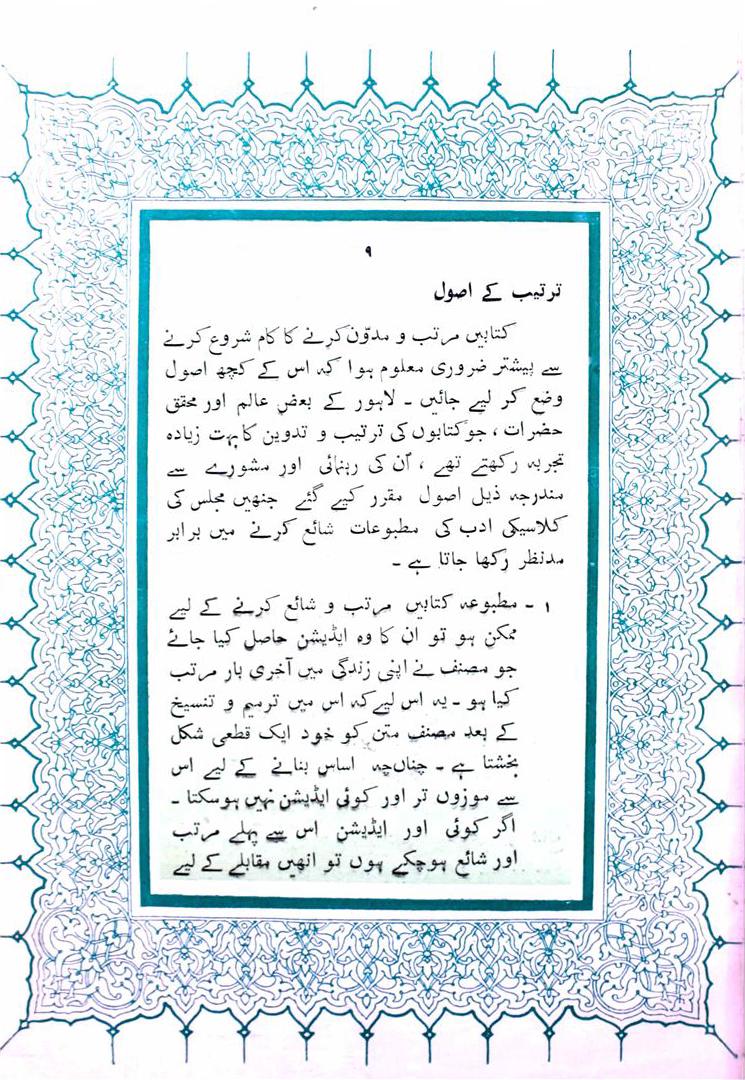 ۹
ترتیب کے اصول
کتابیں مرتب و مدوّن کرنے کا کام شروع کرنے
سے پیشتر ضروری معلوم ہوا کہ اس کے کچھ اصول
وضع کر لیے جائیں ۔ لاہور کے بعض عالم اور محقق
حضرات ، جو کتابوں کی ترتیب و تدوین کا بہت زیادہ
تجربہ رکھتے تھے ، اُن کی رہنمائی اور مشورے سے
مندرجہ ذیل اصول مقرر کیے گئے جنھیں مجلس کی
کلاسیکی ادب کی مطبوعات شائع کرنے میں برابر
مدنظر رکھا جاتا ہے ۔
۱ ۔ مطبوعہ کتابیں مرتب و شائع کرنے کے لیے
ممکن ہو تو ان کا وہ ایڈیشن حاصل کیا جائے
جو مصنف نے اپنی زندگی میں آخری بار مرتب
کیا ہو ۔ یہ اس لیے کہ اس میں ترمیم و تنسیخ
کے بعد مصنف متن کو خود ایک قطعی شکل
بخشتا ہے ۔ چناں‌چہ اساس بنانے کے لیے اس
سے موزوں تر اور کوئی ایڈیشن نہیں ہوسکتا ۔
اگر کوئی اور ایڈیشن اس سے پہلے مرتب
اور شائع ہوچکے ہوں تو انھیں مقابلے کے لیے